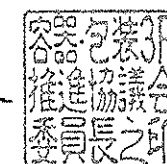 容器包装3R
推進協議会
委員長之印